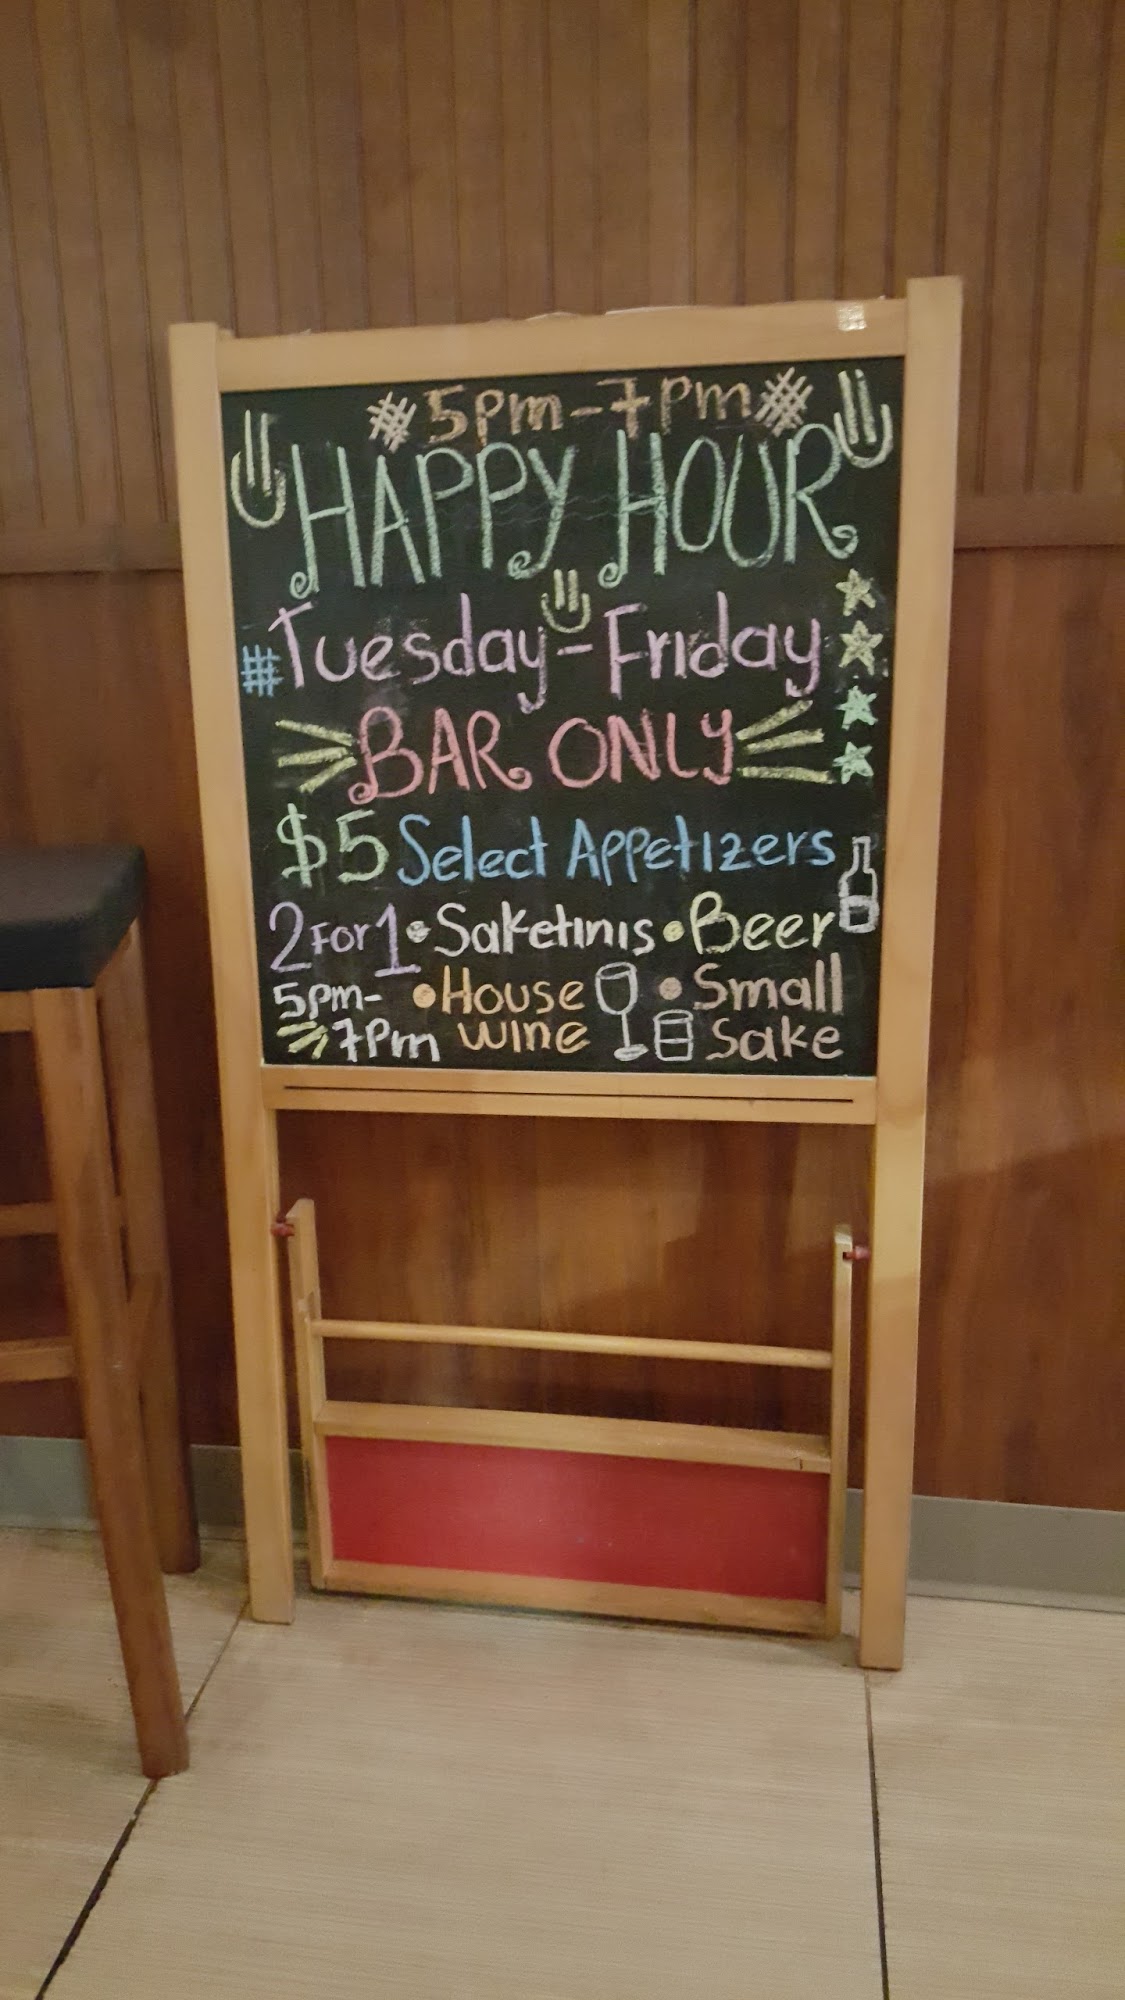 #5pm-7pm#
HAPPY HOUR
#Tuesday-Friday
BAR ONLY
$5 Select Appetizers
2 For 1 • Saketinis • Beer
5pm- • House • Small
7pm wine Sake